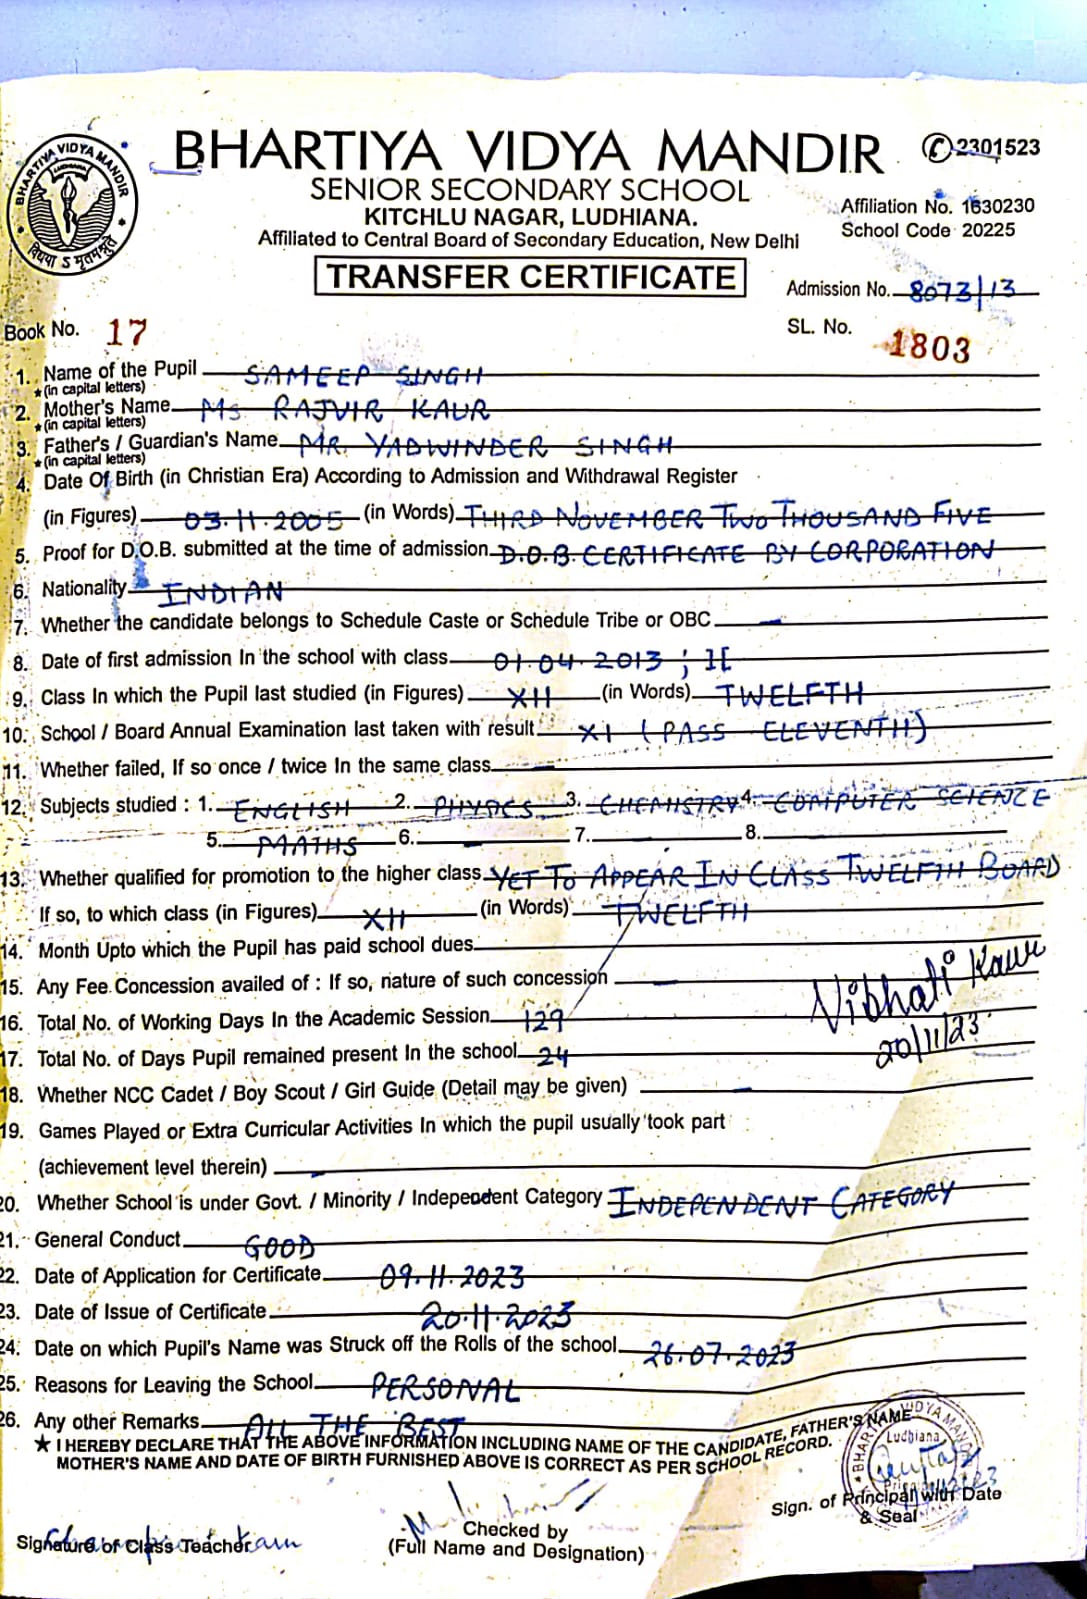 BHARTIYA VIDYA MANDIR
विद्यया ऽ मृतमश्नुते
BHARTIYA VIDYA MANDIR
✆2301523
SENIOR SECONDARY SCHOOL
KITCHLU NAGAR, LUDHIANA.
Affiliation No. 1630230
Affiliated to Central Board of Secondary Education, New Delhi
School Code 20225
TRANSFER CERTIFICATE
Admission No. 8073/13
Book No. 17
SL. No. 1803
1. Name of the Pupil SAMEEP SINGH
★(in capital letters)
2. Mother's Name Ms RAJVIR KAUR
★(in capital letters)
3. Father's / Guardian's Name MR. YADWINDER SINGH
★(in capital letters)
4. Date Of Birth (in Christian Era) According to Admission and Withdrawal Register
(in Figures) 03.11.2005 (in Words) THIRD NOVEMBER TWO THOUSAND FIVE
5. Proof for D.O.B. submitted at the time of admission D.O.B. CERTIFICATE BY CORPORATION
6. Nationality INDIAN
7. Whether the candidate belongs to Schedule Caste or Schedule Tribe or OBC —
8. Date of first admission In the school with class 01.04.2013 ;
9. Class In which the Pupil last studied (in Figures) XII (in Words) TWELFTH
10. School / Board Annual Examination last taken with result XI (PASS ELEVENTH)
11. Whether failed, If so once / twice In the same class —
12. Subjects studied : 1. ENGLISH 2. PHYSICS 3. CHEMISTRY 4. COMPUTER SCIENCE
5. MATHS 6. — 7. — 8. —
13. Whether qualified for promotion to the higher class YET TO APPEAR IN CLASS TWELFTH BOARD
If so, to which class (in Figures) XII (in Words) TWELFTH
14. Month Upto which the Pupil has paid school dues
15. Any Fee Concession availed of : If so, nature of such concession —
Vibhati Kaur
20/11/23
16. Total No. of Working Days In the Academic Session 129
17. Total No. of Days Pupil remained present In the school 24
18. Whether NCC Cadet / Boy Scout / Girl Guide (Detail may be given) —
19. Games Played or Extra Curricular Activities In which the pupil usually took part
(achievement level therein) —
20. Whether School is under Govt. / Minority / Independent Category INDEPENDENT CATEGORY
21. General Conduct GOOD
22. Date of Application for Certificate 09.11.2023
23. Date of Issue of Certificate 20.11.2023
24. Date on which Pupil's Name was Struck off the Rolls of the school 26.07.2023
25. Reasons for Leaving the School PERSONAL
26. Any other Remarks ALL THE BEST
★ I HEREBY DECLARE THAT THE ABOVE INFORMATION INCLUDING NAME OF THE CANDIDATE, FATHER'S NAME
MOTHER'S NAME AND DATE OF BIRTH FURNISHED ABOVE IS CORRECT AS PER SCHOOL RECORD.
Ludhiana
Sign. of Principal with Date
& Seal
Signature of Class Teacher
Checked by
(Full Name and Designation)